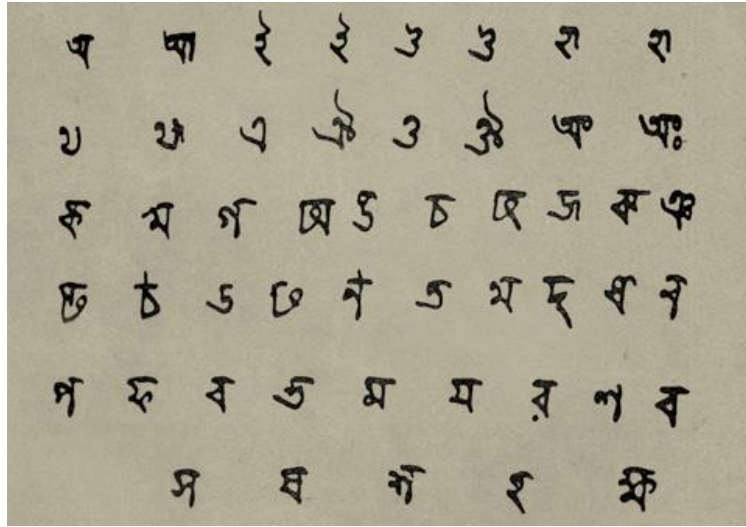 অ আ ই ঈ উ ঊ ঋ ৠ
ঌ ৡ এ ঐ ও ঔ অং অঃ
ক খ গ ঘ ঙ চ ছ জ ঝ ঞ
ট ঠ ড ঢ ণ ত থ দ ধ ন
প ফ ব ভ ম য র ল ৱ
শ ষ স হ ক্ষ